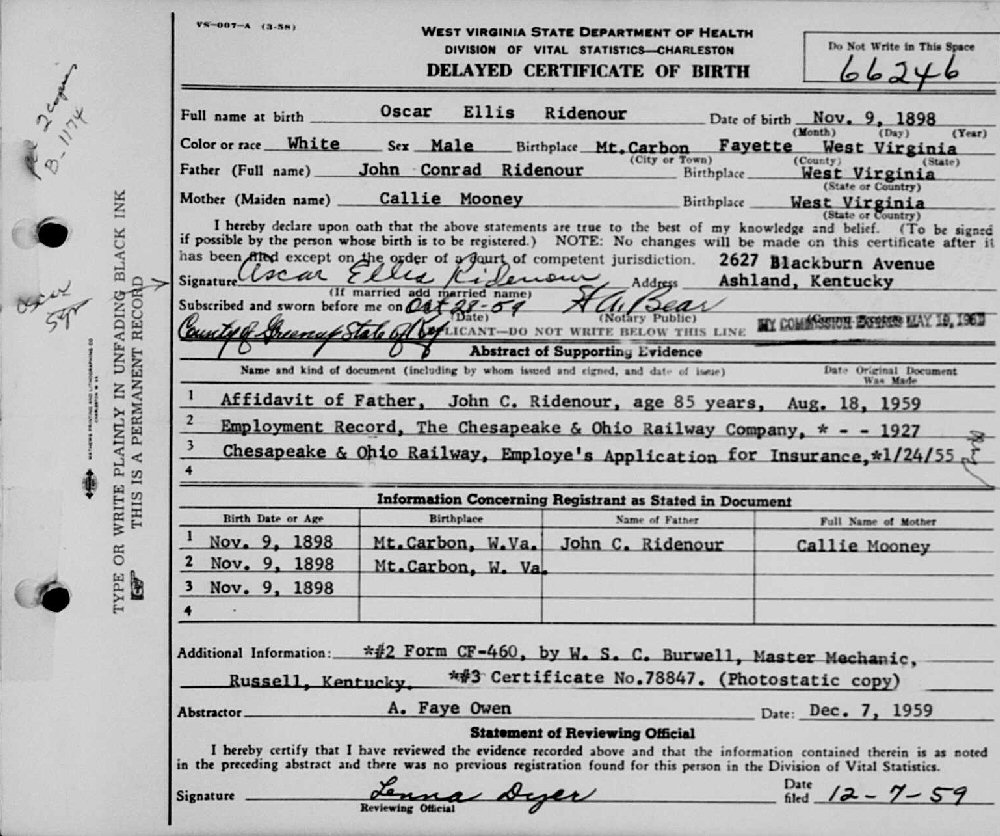 VS-007-A (3-58)
WEST VIRGINIA STATE DEPARTMENT OF HEALTH
DIVISION OF VITAL STATISTICS—CHARLESTON
DELAYED CERTIFICATE OF BIRTH
Do Not Write in This Space
66246
2 Copies
B-1174
Oscar
59r
TYPE OR WRITE PLAINLY IN UNFADING BLACK INK
THIS IS A PERMANENT RECORD
Full name at birth Oscar Ellis Ridenour Date of birth Nov. 9, 1898
(Month) (Day) (Year)
Color or race White Sex Male Birthplace Mt.Carbon Fayette West Virginia
(City or Town) (County) (State)
Father (Full name) John Conrad Ridenour Birthplace West Virginia
(State or Country)
Mother (Maiden name) Callie Mooney Birthplace West Virginia
(State or Country)
I hereby declare upon oath that the above statements are true to the best of my knowledge and belief. (To be signed
if possible by the person whose birth is to be registered.) NOTE: No changes will be made on this certificate after it
has been filed except on the order of a court of competent jurisdiction. 2627 Blackburn Avenue
Signature Oscar Ellis Ridenour Address Ashland, Kentucky
(If married add married name)
Subscribed and sworn before me on Oct 29-59 H A. Bear
(Date) (Notary Public)
County of Greenup State of Ky
APPLICANT—DO NOT WRITE BELOW THIS LINE MY COMMISSION EXPIRES MAY 19,
Abstract of Supporting Evidence
Name and kind of document (including by whom issued and signed, and date of issue) Date Original Document
Was Made
1 Affidavit of Father, John C. Ridenour, age 85 years, Aug. 18, 1959
2 Employment Record, The Chesapeake & Ohio Railway Company, * - - 1927
3 Chesapeake & Ohio Railway, Employe's Application for Insurance,*1/24/55
4
Information Concerning Registrant as Stated in Document
Birth Date or Age Birthplace Name of Father Full Name of Mother
1 Nov. 9, 1898 Mt.Carbon, W.Va. John C. Ridenour Callie Mooney
2 Nov. 9, 1898 Mt.Carbon, W. Va.
3 Nov. 9, 1898
4
Additional Information: *#2 Form CF-460, by W. S. C. Burwell, Master Mechanic,
Russell, Kentucky. *#3 Certificate No.78847. (Photostatic copy)
Abstractor A. Faye Owen Date: Dec. 7, 1959
Statement of Reviewing Official
I hereby certify that I have reviewed the evidence recorded above and that the information contained therein is as noted
in the preceding abstract and there was no previous registration found for this person in the Division of Vital Statistics.
Signature Lenna Dyer Date
filed 12-7-59
Reviewing Official